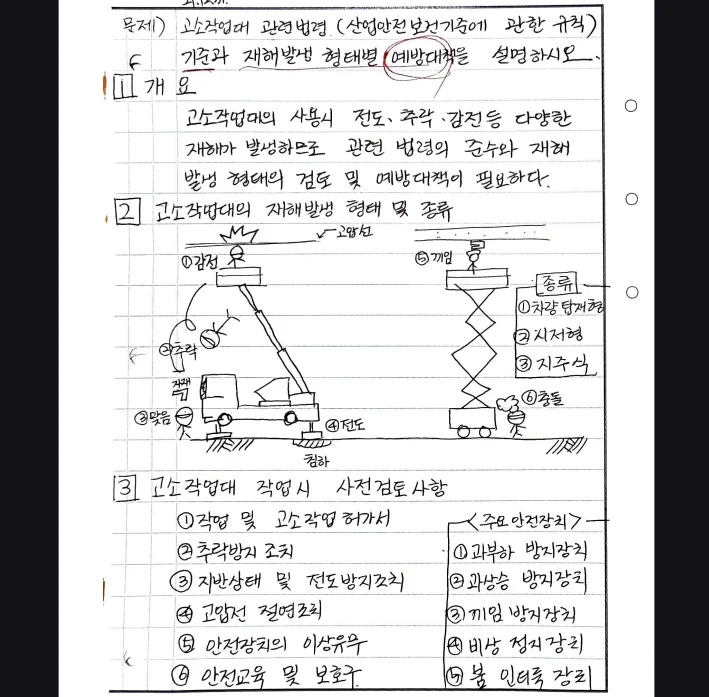 문제) 고소작업대 관련법령 (산업안전보건기준에 관한 규칙)
기준과 재해발생 형태별 예방대책을 설명하시오.
1 개요
고소작업대의 사용시 전도、추락、감전등 다양한
재해가 발생하므로 관련 법령의 준수와 재해
발생 형태의 검토 및 예방대책이 필요하다.
2 고소작업대의 재해발생 형태 및 종류
고압선
①감전
⑤끼임
종류
①차량탑재형
②시저형
③지주식
②추락
자재
③맞음
④전도
⑥충돌
침하
3 고소작업대 작업시 사전검토사항
①작업 및 고소작업 허가서
②추락방지 조치
③지반상태 및 전도방지조치
④고압선 절연조치
⑤안전장치의 이상유무
⑥안전교육 및 보호구
<주요안전장치>
①과부하 방지장치
②과상승 방지장치
③끼임 방지장치
④비상 정지 장치
⑤붐 인터록 장치